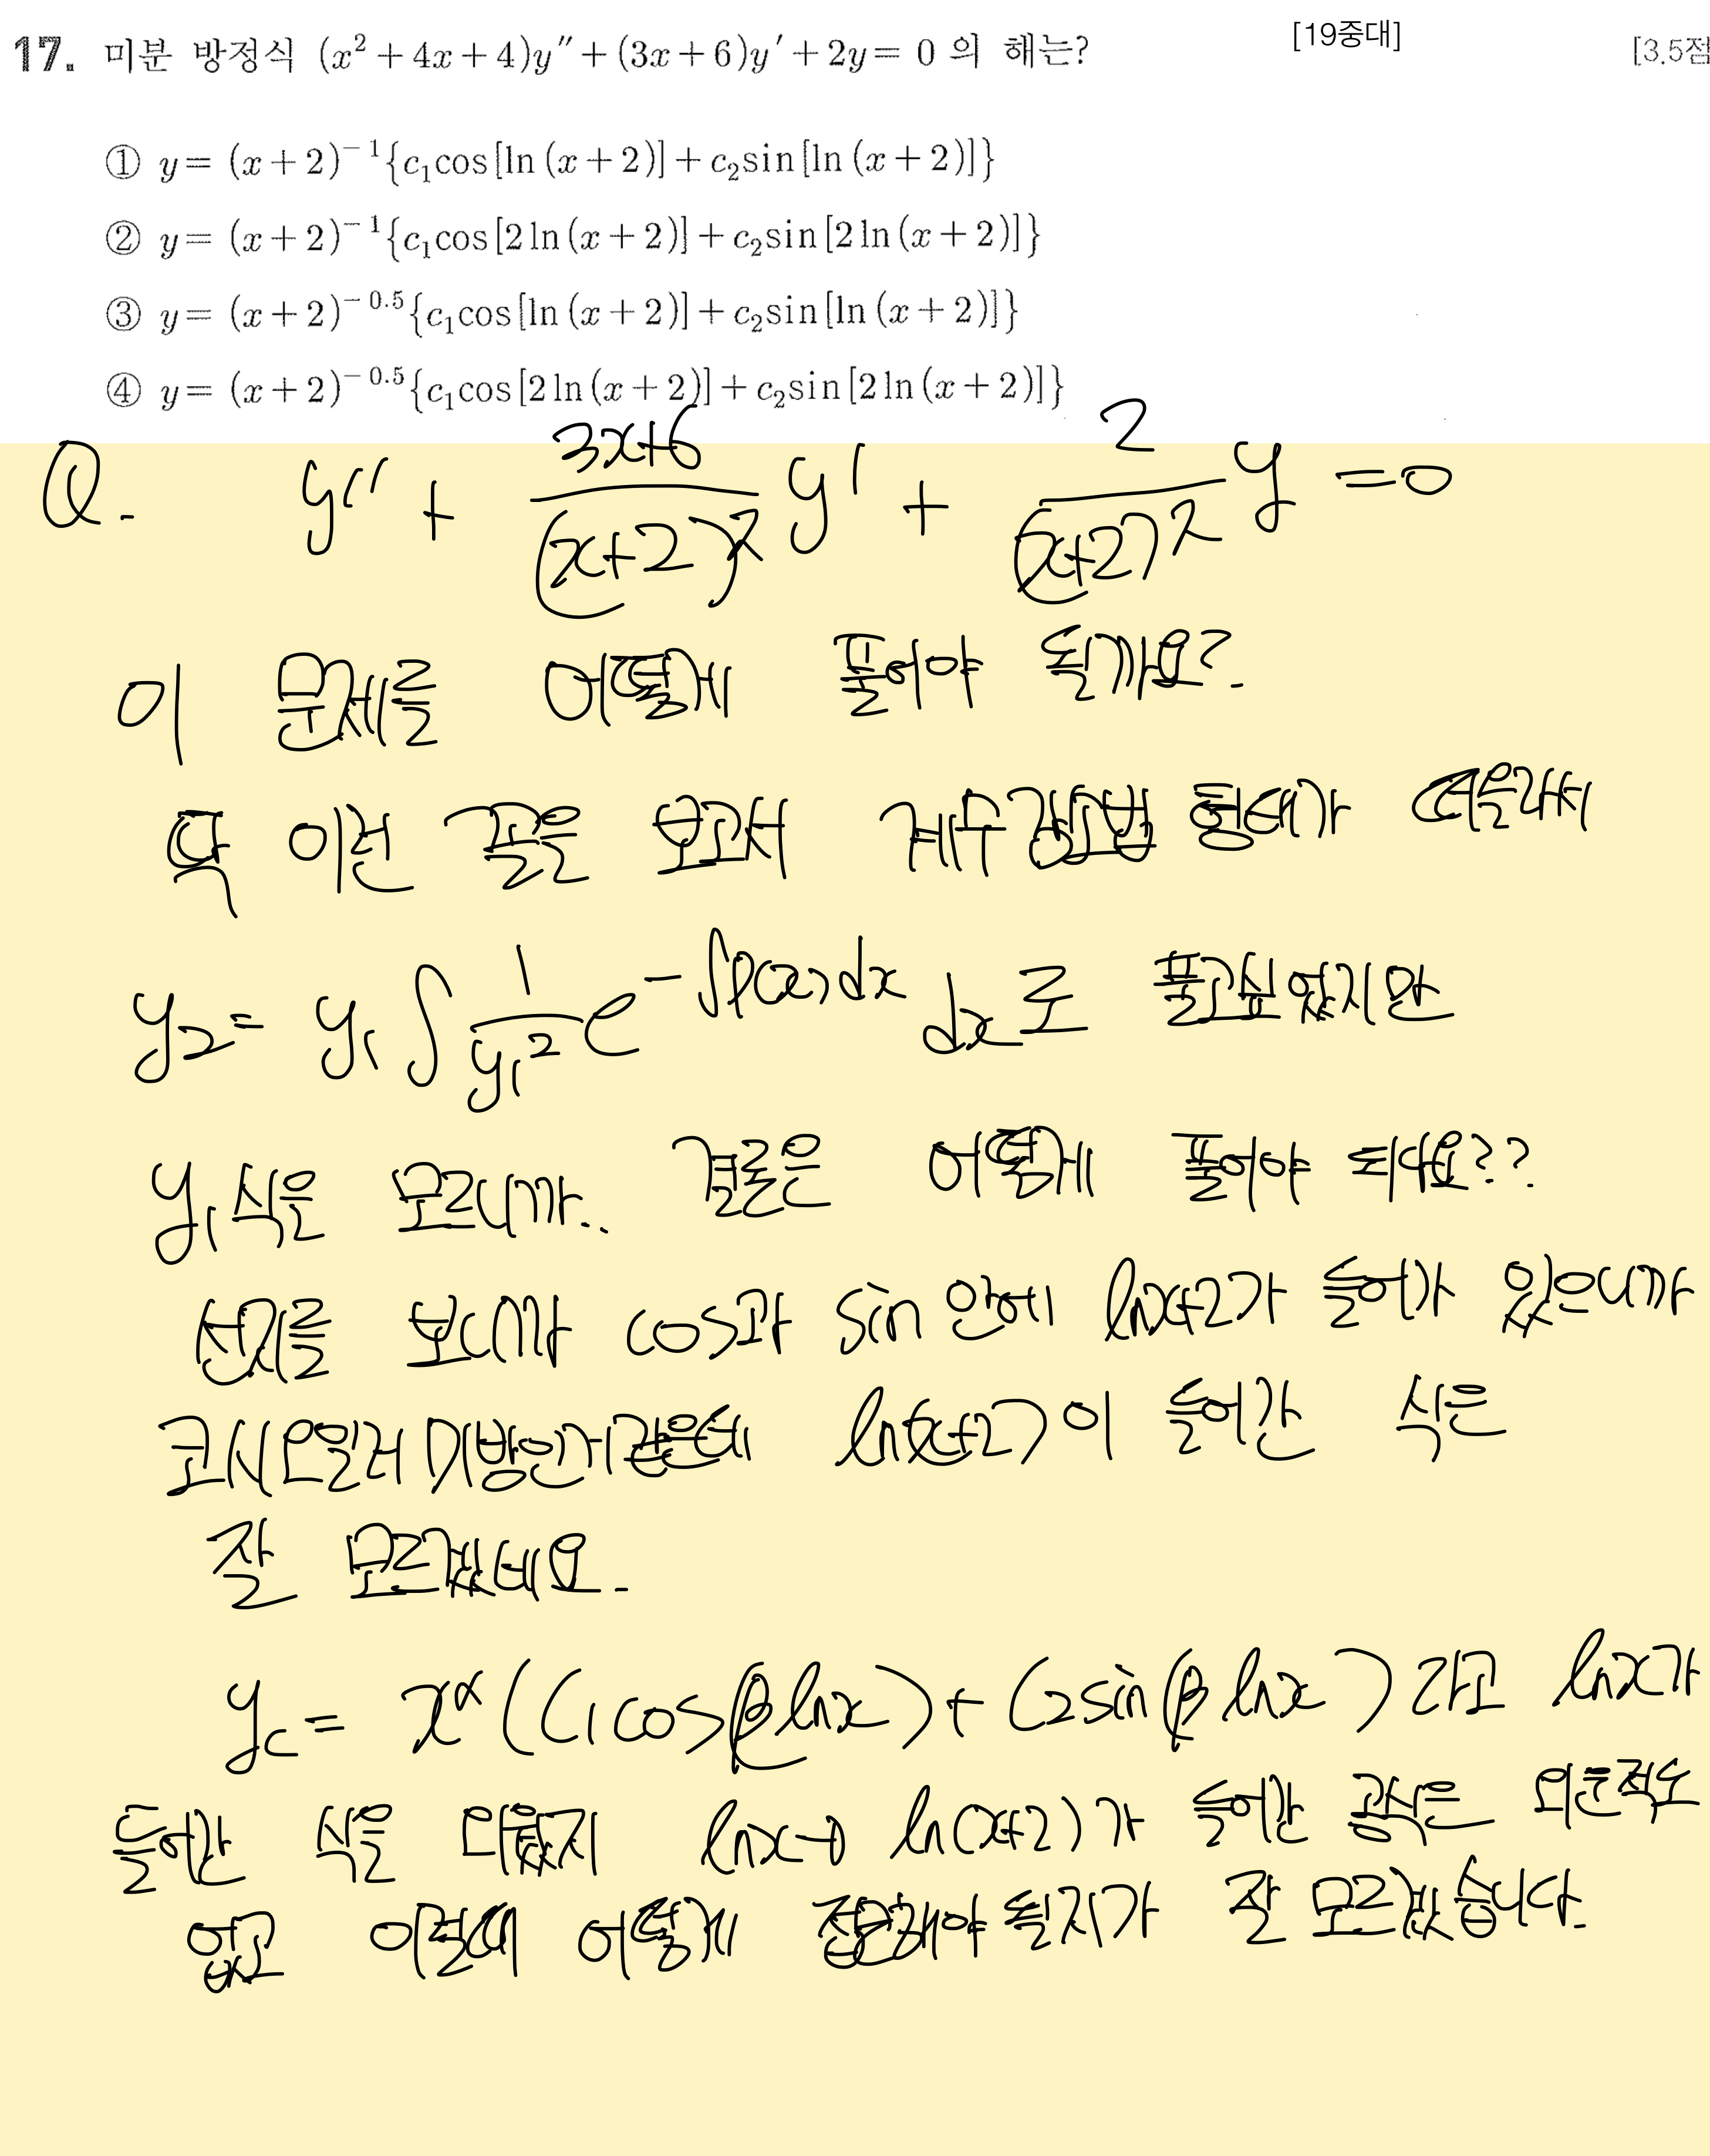 17. 미분 방정식 (x² + 4x + 4)y″ + (3x + 6)y′ + 2y = 0 의 해는? [19중대] [3.5점
① y = (x + 2)⁻¹{c₁cos[ln(x + 2)] + c₂sin[ln(x + 2)]}
② y = (x + 2)⁻¹{c₁cos[2ln(x + 2)] + c₂sin[2ln(x + 2)]}
③ y = (x + 2)^{-0.5}{c₁cos[ln(x + 2)] + c₂sin[ln(x + 2)]}
④ y = (x + 2)^{-0.5}{c₁cos[2ln(x + 2)] + c₂sin[2ln(x + 2)]}
Q. y″ + (3x+6)/(x+2)² y′ + 2/(x+2)² y = 0
이 문제를 어떻게 풀어야 될까요?
딱 이런 꼴을 보고서 계수감소법 형태가 떠올라서
y₂ = y₁ ∫ 1/y₁² e^{-∫p(x)dx} dx로 풀고싶었지만
y₁식은 모르니까.. 결론은 어떻게 풀어야 되나요??
선지를 보니까 cos과 sin 안에 lnx+2가 들어가 있으니까
코시오일러 미방인거같은데 ln(x+2)이 들어간 식은
잘 모르겠네요.
y_c = x^α(C₁cos(βlnx) + C₂sin(βlnx) 라고 lnx가
들어간 식을 외웠지 lnx→ ln(x+2)가 들어간 공식은 외운적도
없고 이럴때 어떻게 접근해야 될지가 잘 모르겠습니다.